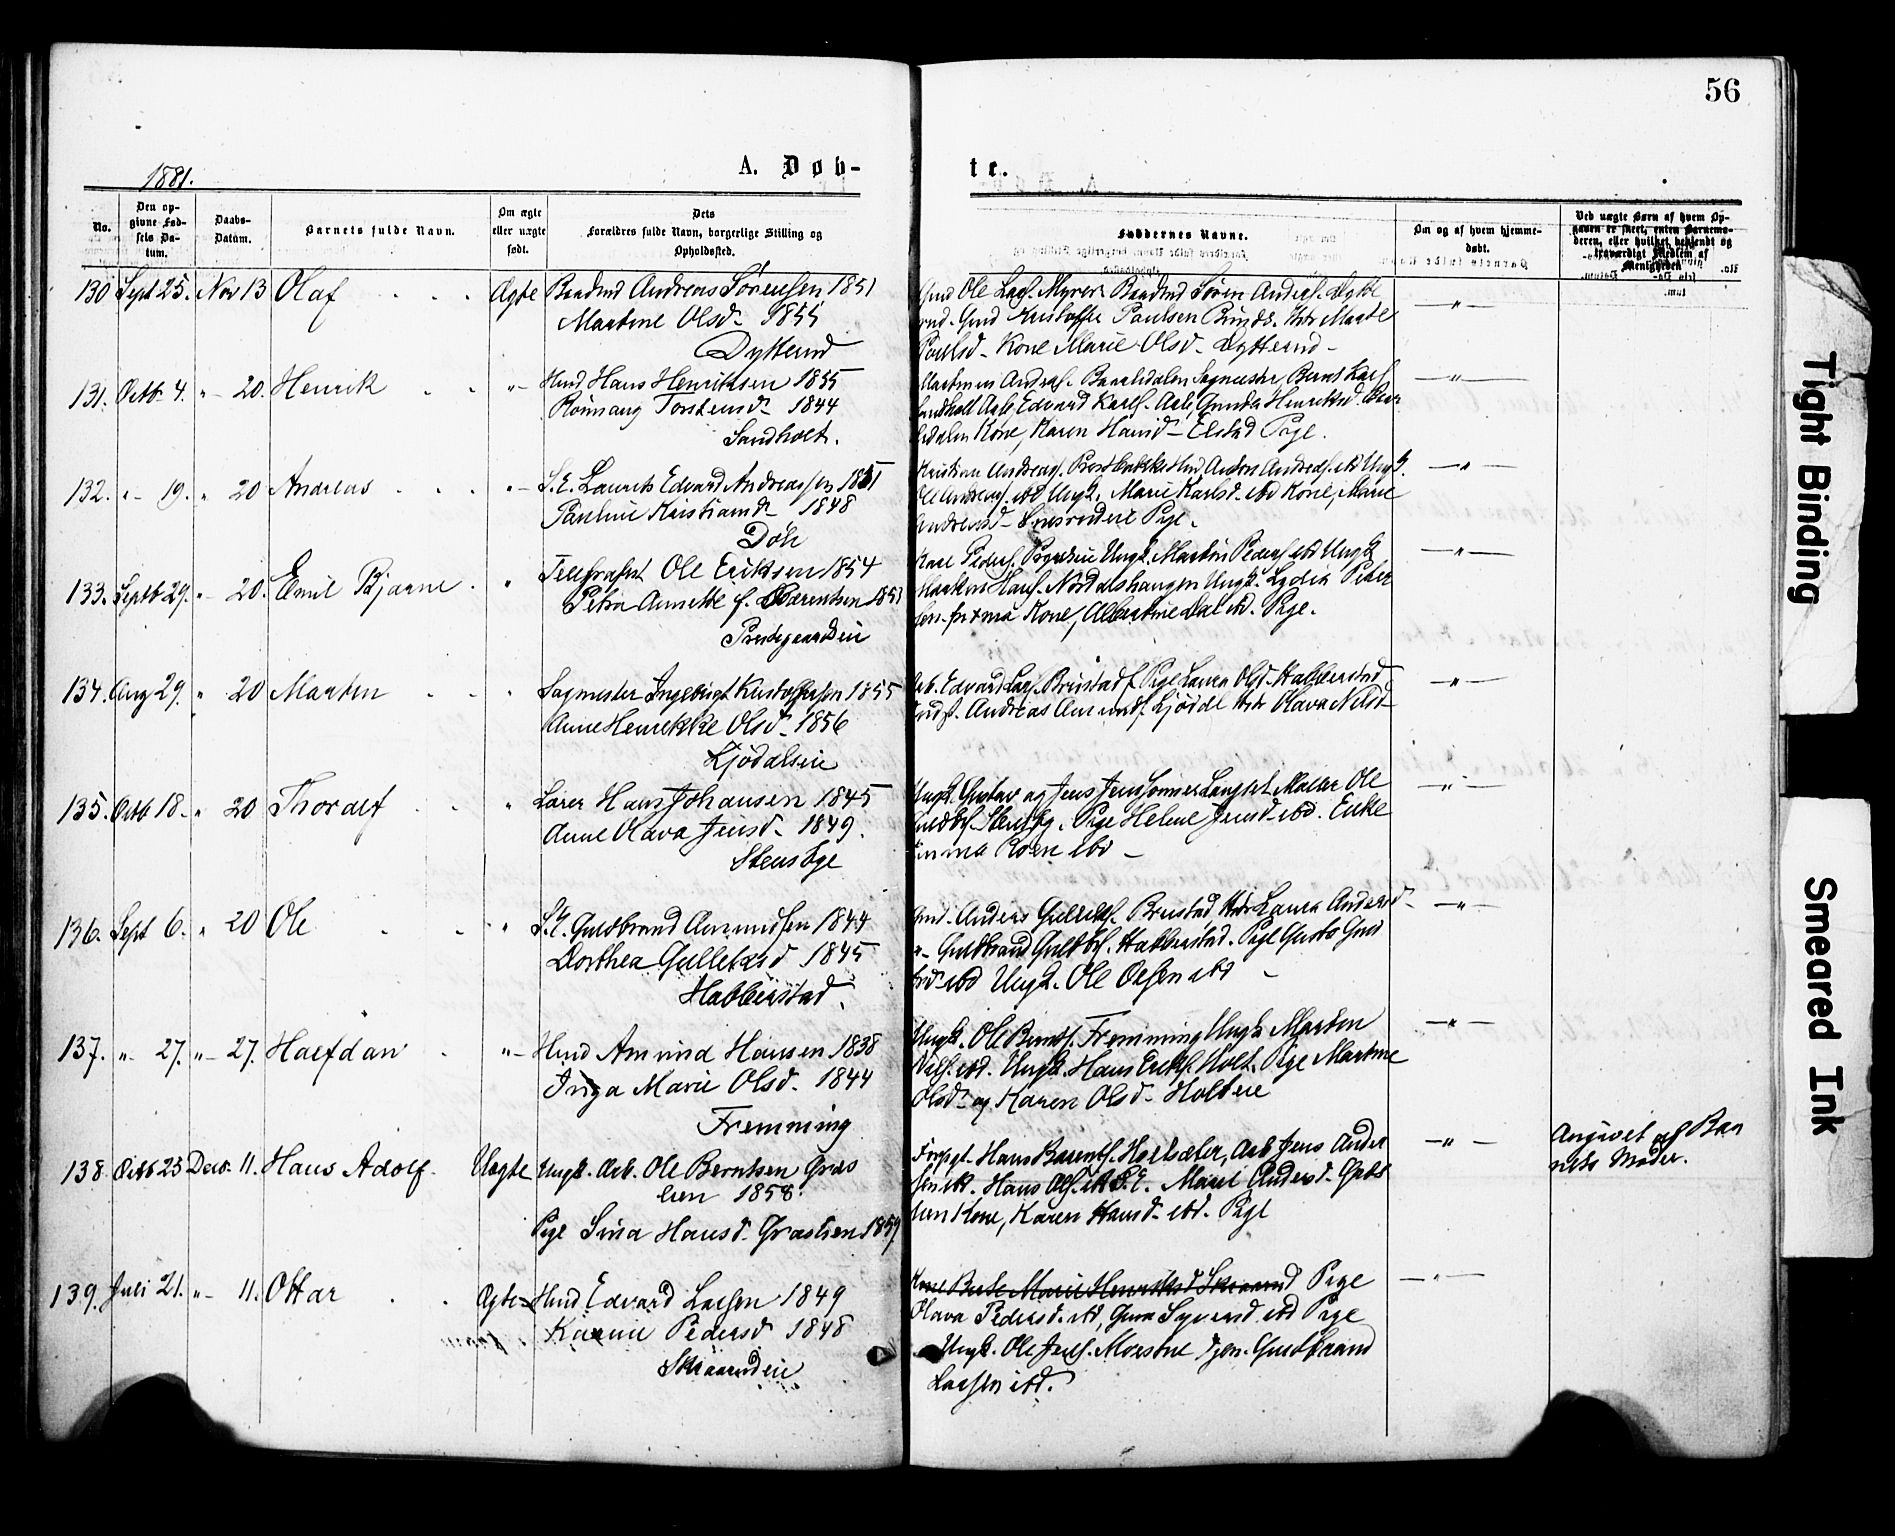 56
1881.
A. Døb-
te.
No.
Den op-
givne Fød-
sels Da-
tum.
Daabs-
Datum.
Barnets fulde Navn.
Om ægte
eller uægte
født.
Dets
Forældres fulde Navn, borgerlige Stilling og
Opholdssted.
Faddernes Navne.
Om og af hvem hjemme-
døbt.
Ved uægte Børn af hvem Op-
gaven er skeet, enten Barnemo-
deren, eller hvilket bekjendt og
troværdigt Medlem af
Menigheden
130 Sept 25. Nov 13 Olaf Ægte Andreas Sørensen 1851
Martine Olsd. 1855
Dytterud
Ole Lars. Myrer Søren Anders. Dytte
rud. Gmd Kristoffer Paulsen Marte
Paulsd. Kone Marie Olsd. Dytterud
131. Octb. 4. " 20. Henrik " Hmd Hans Henriksen 1855
Torstensd. 1844
Sandholt.
Martin Andreas. Bernt Karls.
Sandholt Arb, Edvard Karls. Arb, Gunda Henriksd
Kone, Karen Hansd. Elstad Pige.
132. " 19. " 20 Andreas " S.E. Laurits Edvard Andreassen 1851
Pauline Kristiansd. 1848
Døh
Kristian Andreas. Anton Andreas. ibd Ungk.
Ole Andreas. ibd Ungk. Marie Karlsd. ibd Kone, Marie
Andreasd. Pige.
133. Septb 29. " 20. Emil Bjarne " Telegrafist Ole Eriksen 1854
Petra Annette f. Barentsen 1851
Prestegaardseie
Karl Peders. Ungk. Martin Peders. ibd Ungk
Hans. Nordalshaugen Ungk. Lydia Peter
sen Kone, Albertine Dal ibd. Pige.
134. Aug 29. " 20 Marten " Sagmester Ingebrigt Kristoffersen 1855
Anne Henrikke Olsd. 1856
Ljødalseie
Arb. Edvard Lars. Brustad f. Pige Laura Olsd. Habberstad
Andreas Amunds. Ljødal Olava Nilsd
135. Octb 18. " 20 Thoralf " Lærer Hans Johansen 1845
Anne Olava Jensd. 1849.
Stensbye
Ungk. Gustav og Jens Jenssønner Langset Maler Ole
Guldbrs. Stensby. Pige Helene Jensd. ibd. Enke
Emma Roen ibd
136. Sept 6. " 20 Ole " S.E. Guldbrand Amundsen 1844
Dorthea Gulleksd 1845
Habberstad.
Gmd. Anders Gulleks. Brustad Laura Andersd.
Guldbrand Guldbrs. Habberstad. Pige
ibd Ungk. Ole Olsen ibd
137. " 27. " 27. Halfdan " Hmd Amund Hansen 1838
Inga Marie Olsd. 1844
Fremming
Ungk. Ole Bernts. Fremming Ungk Marten
Nils. ibd. Ungk. Hans Eriks. Holt. Pige Martine
Olsd. og Karen Olsd. Holteie
138 Octb 23 Decb. 11. Hans Adolf. Uægte Ungk. Arb. Ole Berntsen Græs
lien 1858.
Pige Sina Hansd. Græslien 1859
Hans Barents. Arb Jens Ander
sen ibd. Hans Ols. ibd S.E. Marie Andersd. Græs
lien Kone, Karen Hansd. ibd. Pige
Angivet af Bar
nets Moder.
139. Juli 21. " 11. Ottar Ægte Hmd Edvard Larsen 1849
Karine Pedersd 1848
Skraarudeie
Kone Berte Marie Henriksd Skraarud Pige
Olava Pedersd. ibd, Syversd ibd Pige
Ungk. Ole Jens. Morstue Tjen. Guldbrand
Larsen ibd.
Tight Binding
Smeared Ink